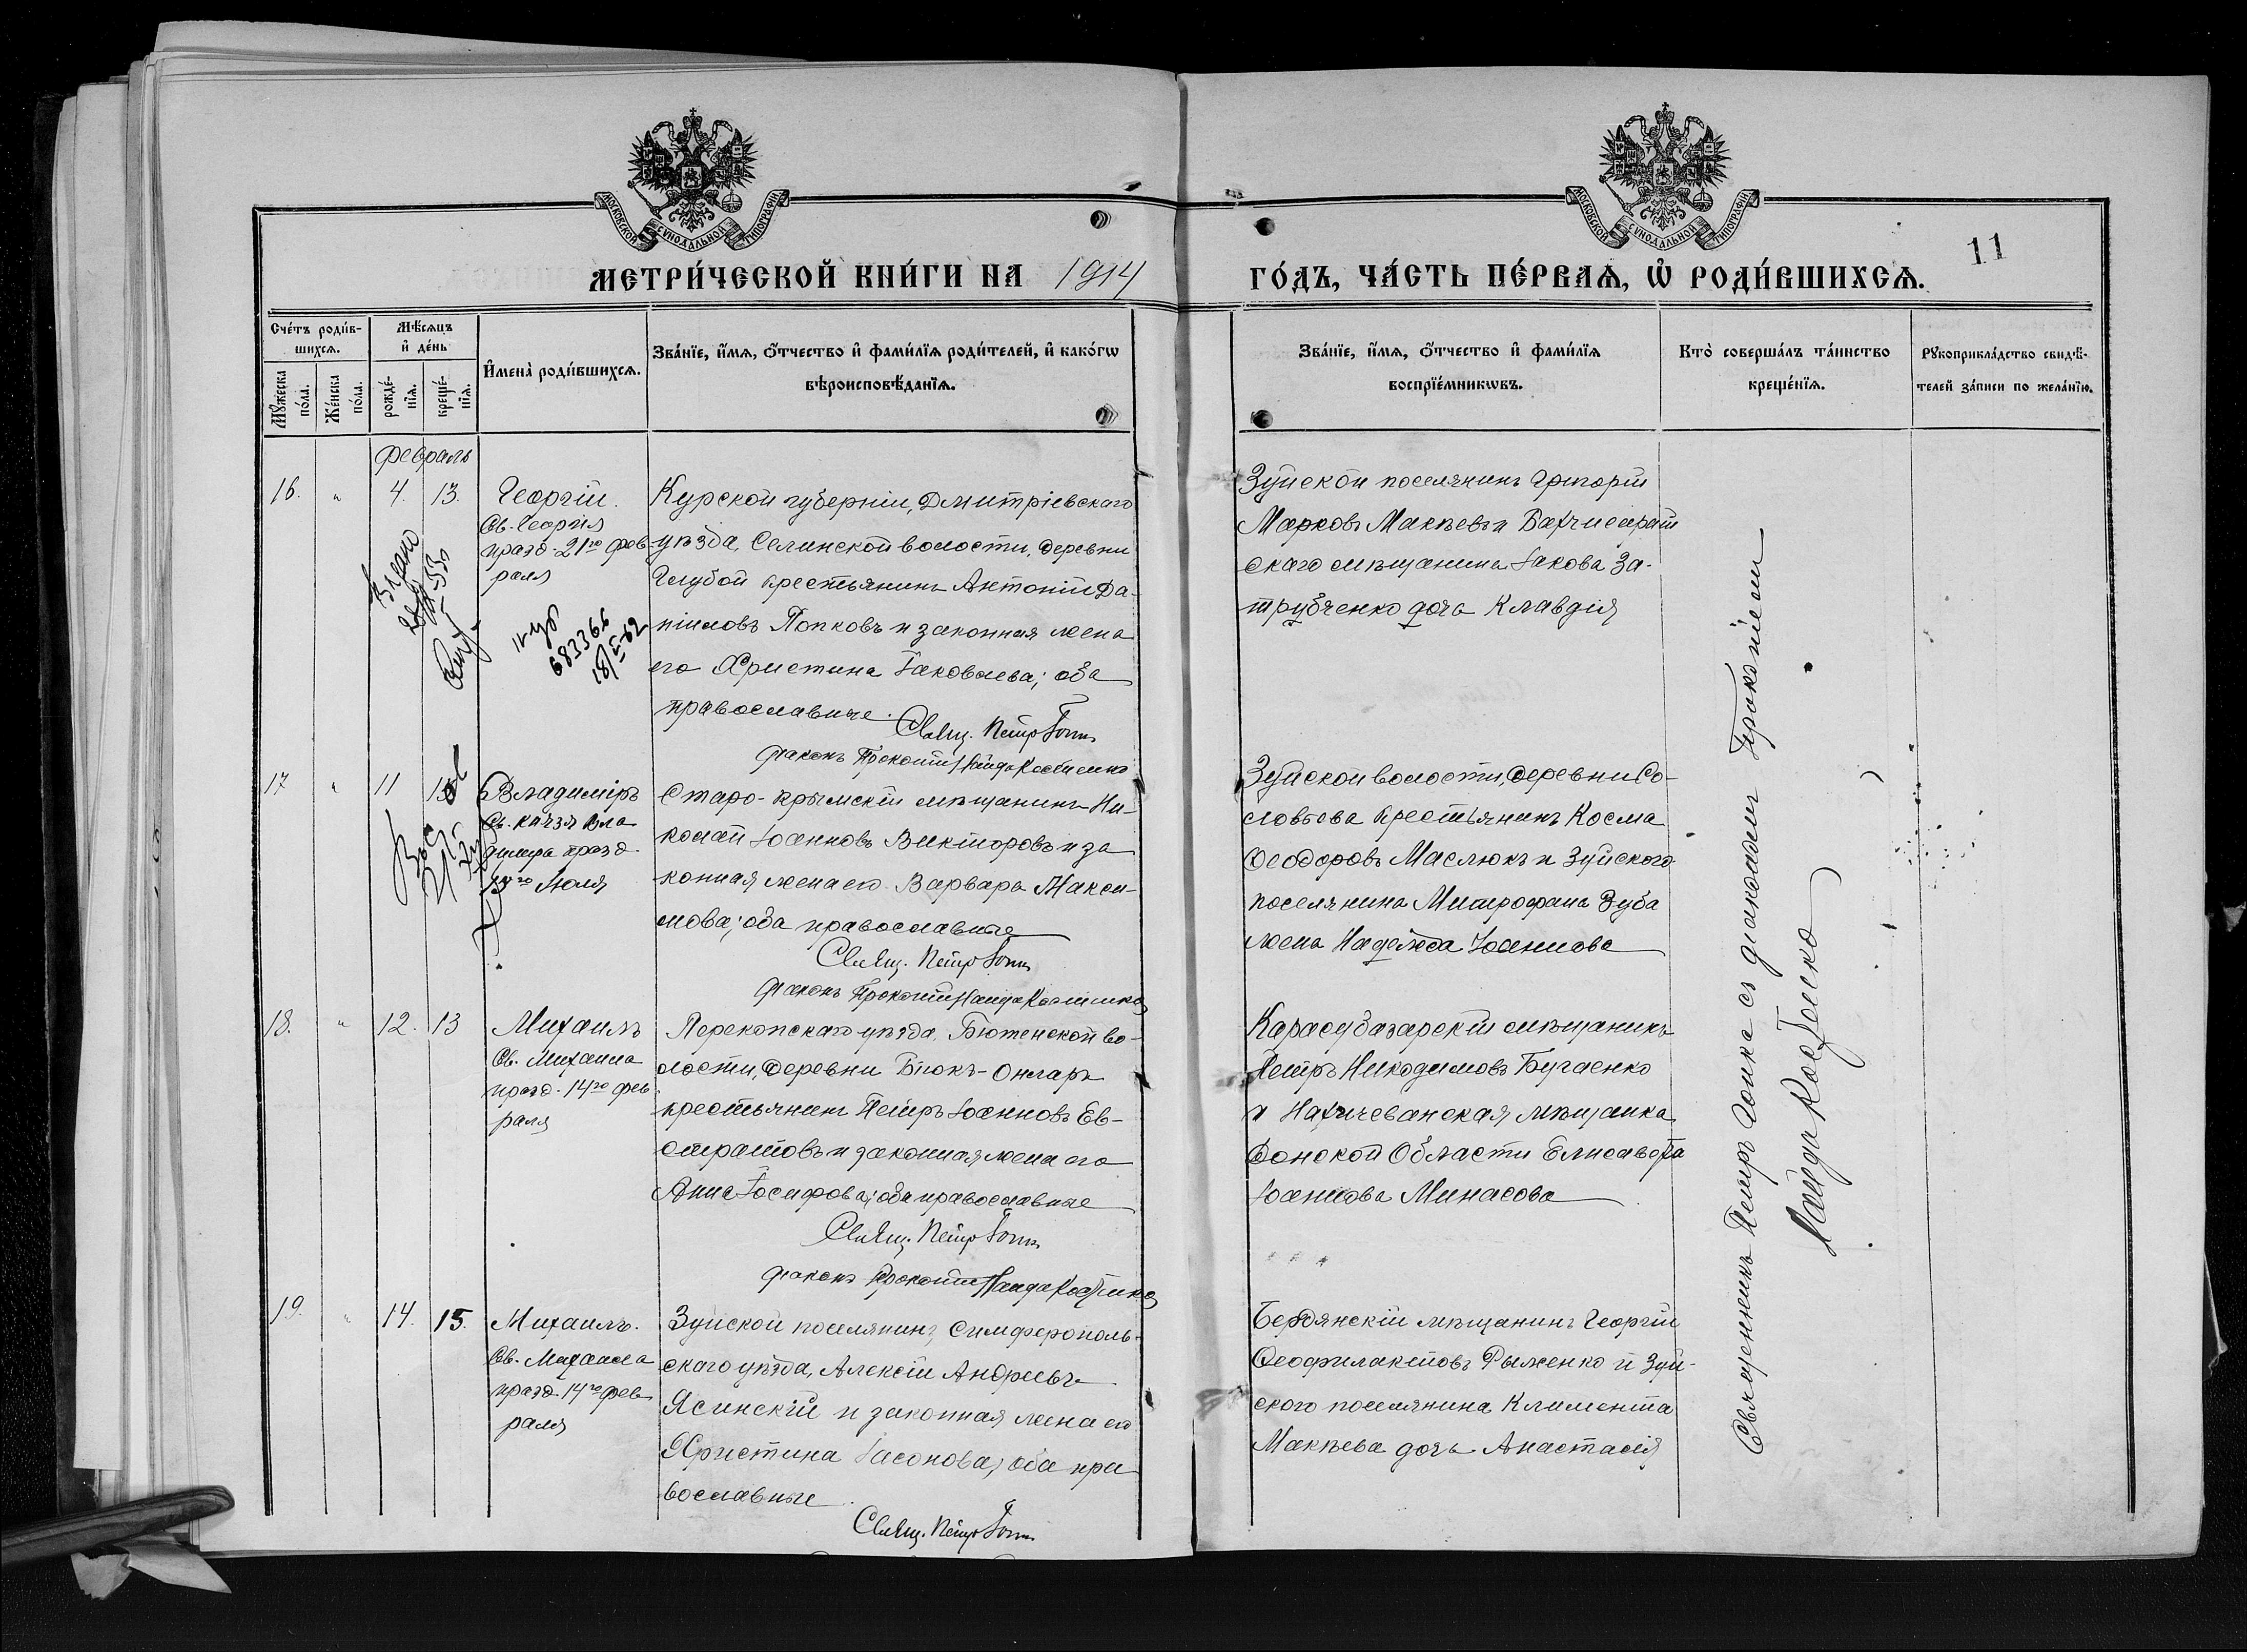 МОСКОВСКОЙ СѴНОДАЛЬНОЙ ТИПОГРАФІИ
МОСКОВСКОЙ СѴНОДАЛЬНОЙ ТИПОГРАФІИ
11
МЕТРИ́ЧЕСКОЙ КНИ́ГИ НА 1914
ГО́ДЪ, ЧА́СТЬ ПЕ́РВАѦ, Ѡ҆ РОДИ́ВШИХСѦ.
Сче́тъ роди́в-
шихсѧ.
Мꙋ́жеска по́ла.
Же́нска по́ла.
Мѣ́сѧцъ
и҆ де́нь
рожде́-
нїѧ.
креще́-
нїѧ.
И҆мена̀ роди́вшихсѧ.
Зва́нїе, и҆́мѧ, ѻ҆́тчество и҆ фами́лїѧ роди́телей, и҆ како́гѡ
вѣроисповѣ́данїѧ.
Зва́нїе, и҆́мѧ, ѻ҆́тчество и҆ фами́лїѧ
воспрїе́мникѡвъ.
Кто̀ соверша́лъ та́инство
креще́нїѧ.
Рꙋкоприкла́дство свидѣ́-
телей за́писи по жела́нїю.
Февраль
16. " 4. 13. Георгій.
Св. Георгія
празд. 21го фев-
раля
Курской губерніи, Дмитріевскаго
уѣзда, Селинской волости, деревни
Голубой крестьянинъ Антоній Да-
ніиловъ Попковъ и законная жена
его Христина Іаковлева; оба
православные.
Свящ. Петръ Гопка
діаконъ Прокопій Найда Костенко
Зуйской поселянинъ Григорій
Марковъ Макѣевъ и Бахчисарай
скаго мѣщанина Іакова За-
трубченко дочь Клавдія
683366
17 " 11 Владиміръ
Св. князя Вла
димира празд.
15го Іюля
Старо-Крымскій мѣщанинъ Ни-
колай Іоанновъ Викторовъ и за
конная жена его Варвара Макси-
мова; оба православные
Свящ. Петръ Гопка
діаконъ Прокопій Найда Костенко
Зуйской волости, деревни Со-
ловьева крестьянинъ Косма
Ѳеодоровъ Маслюкъ и Зуйского
поселянина Митрофана Зуба
жена Надежда Іоаннова
18. " 12. 13 Михаилъ
Св. Михаила
празд. 14го фев
раля
Перекопскаго уѣзда, Бютенской во-
лости, деревни Біюкъ-Онларъ
крестьянинъ Петръ Іоанновъ Ев-
стратовъ и законная жена его
Анна Іосифова; оба православные
Свящ. Петръ Гопка
діаконъ Прокопій Найда Костенко
Карасубазарскій мѣщанинъ
Петръ Никодимовъ Бугаенко
и Нахичеванская мѣщанка
Донской Области Елисавета
Іоаннова Минасова
19. " 14. 15. Михаилъ.
Св. Михаила
празд. 14го фев
раля
Зуйской поселянинъ, Симферополь-
скаго уѣзда, Алексій Андреевъ
Ясинскій и законная жена его
Христина Іасонова; оба пра
вославные
Свящ. Петръ Гопка
Бердянскій мѣщанинъ Георгій
Ѳеофилактовъ Рыженко и Зуй-
ского поселянина Климента
Макѣева дочь Анастасія
Священникъ Петръ Гопка съ діакономъ Прокопіемъ
Найда Костенко